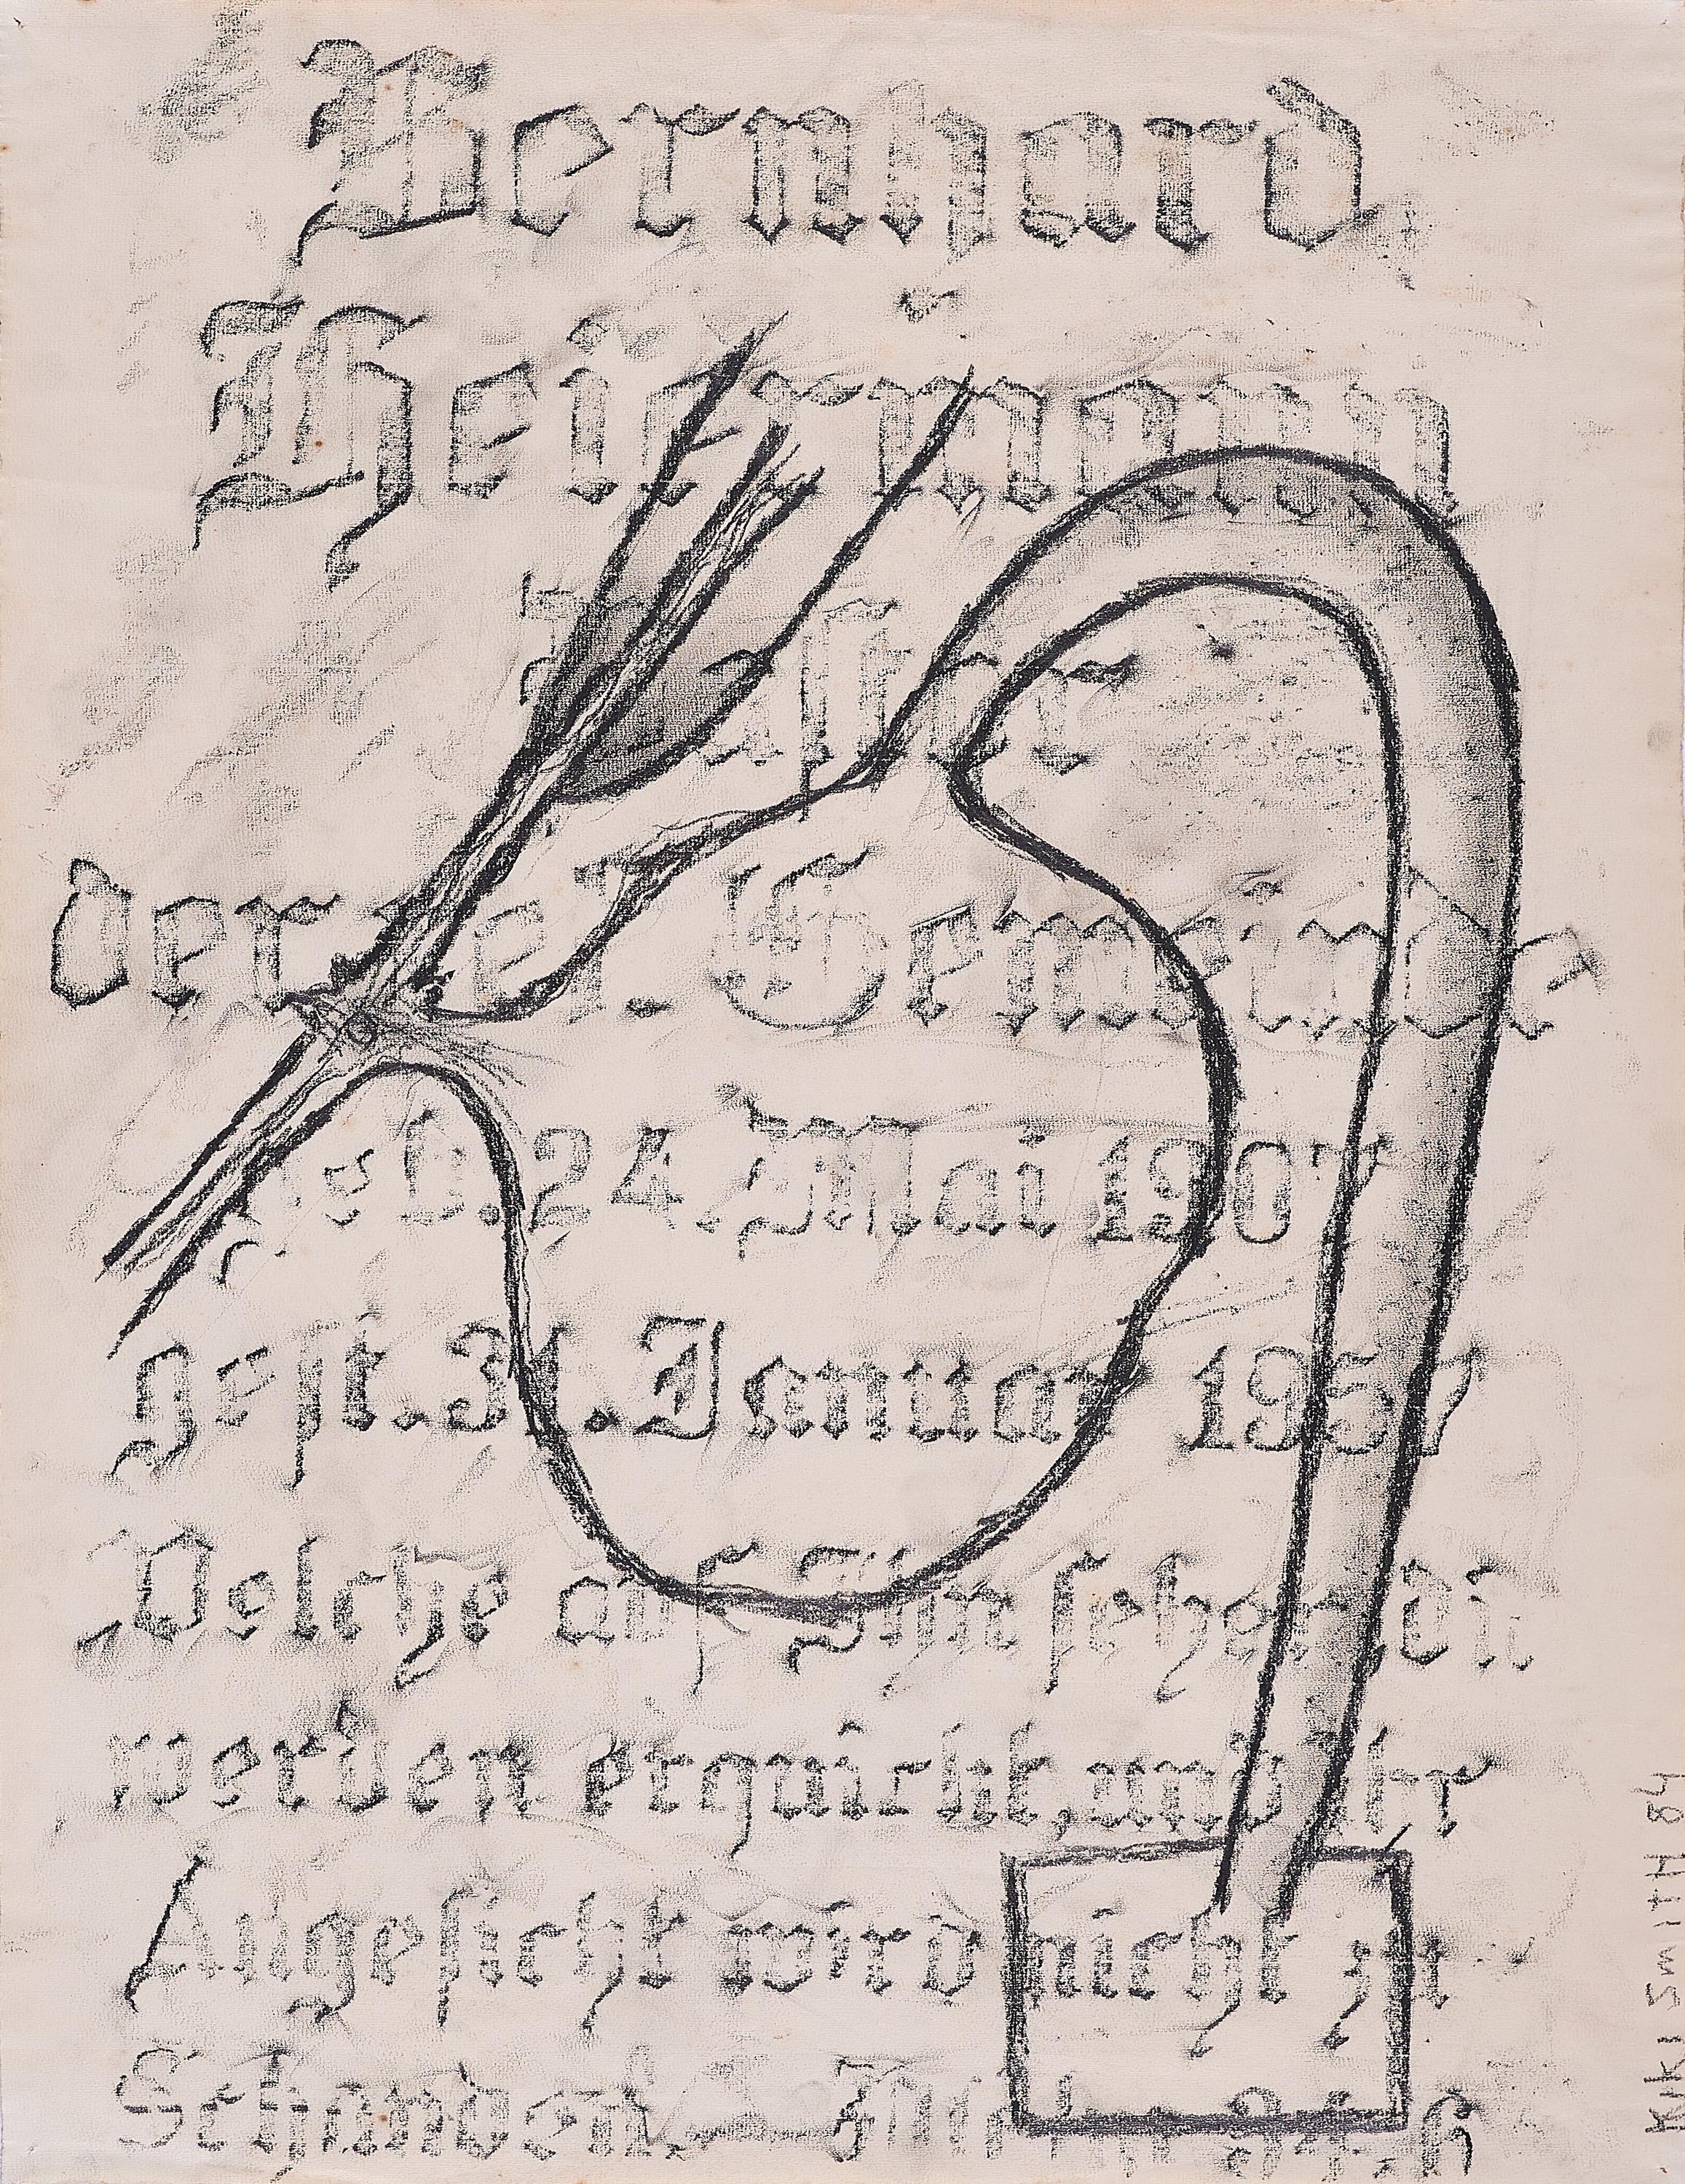 Bernhard
Pastor
der Gemeinde
geb. 24. Mai 1907
gest. 31. Januar 1957
Welche auf Ihn sehen, die
werden erquickt, und ihr
Angesicht wird nicht zu
Schanden. 34. 6
KIKI SMITH 84